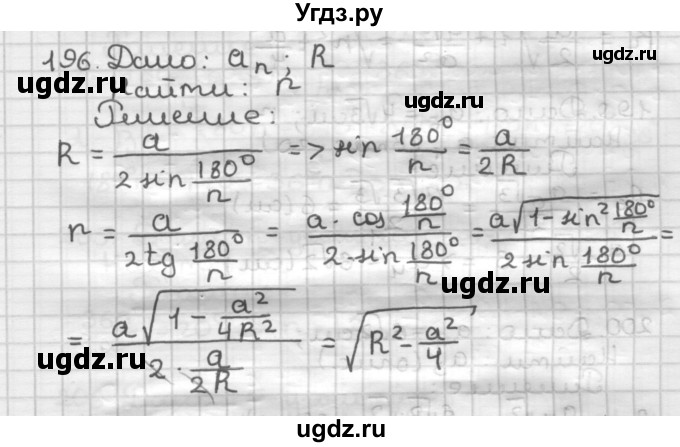 Угдз.ру
196. Дано: aₙ; R
Найти: r
Решение:
R = a / (2 sin 180°/n) => sin 180°/n = a/2R
r = a / (2tg 180°/n) = (a · cos 180°/n) / (2 · sin 180°/n) = (a√(1 - sin² 180°/n)) / (2 sin 180°/n) =
= (a√(1 - a²/4R²)) / (2 · a/2R) = √(R² - a²/4)
ugdz.ru
ugdz.ru
ugdz.ru
ugdz.ru
ugdz.ru
ugdz.ru